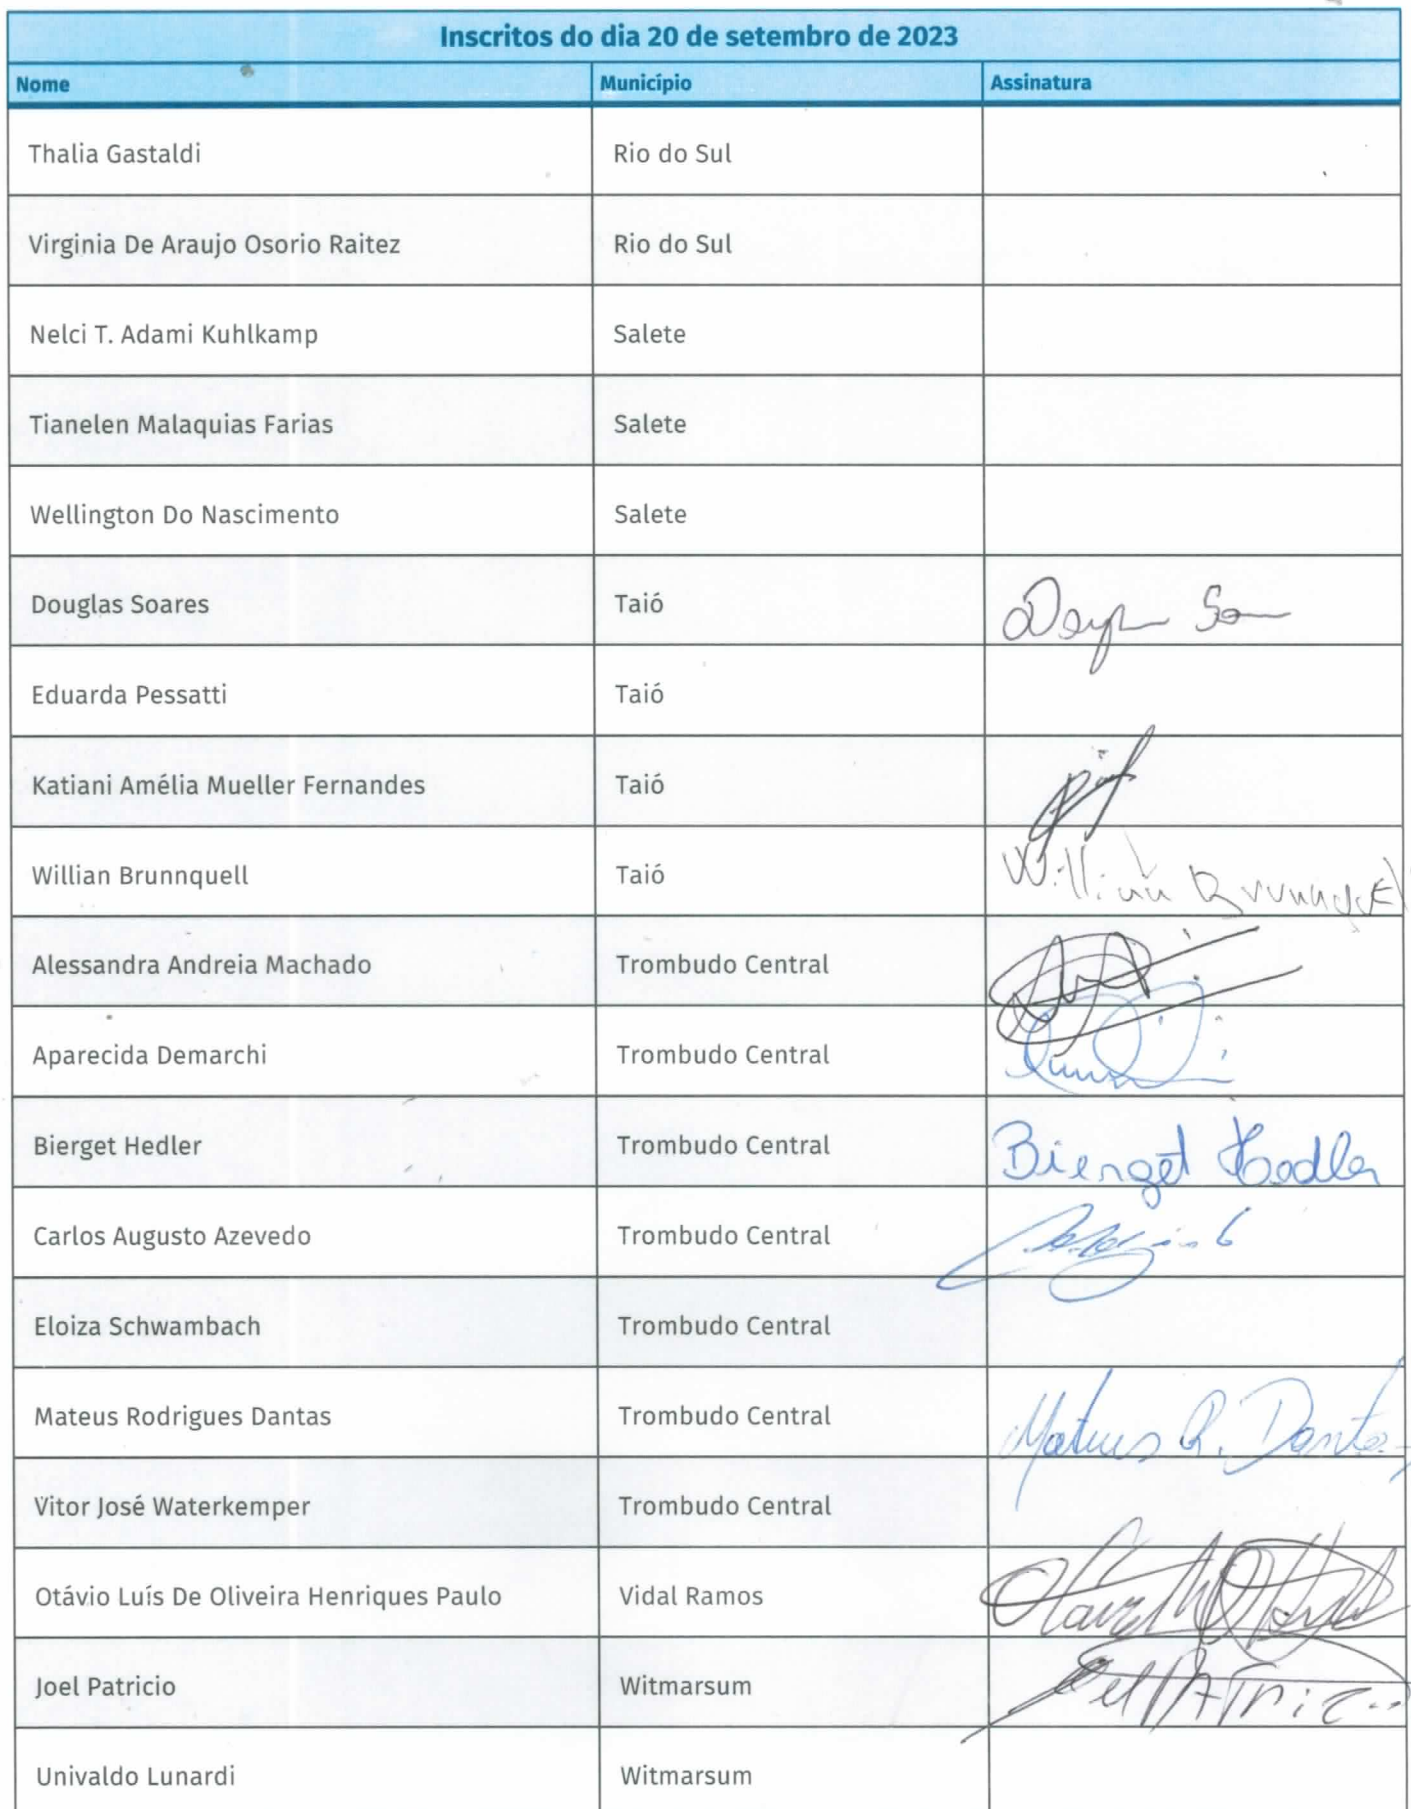 Inscritos do dia 20 de setembro de 2023
Nome Município Assinatura
Thalia Gastaldi Rio do Sul
Virginia De Araujo Osorio Raitez Rio do Sul
Nelci T. Adami Kuhlkamp Salete
Tianelen Malaquias Farias Salete
Wellington Do Nascimento Salete
Douglas Soares Taió
Eduarda Pessatti Taió
Katiani Amélia Mueller Fernandes Taió
Willian Brunnquell Taió Willian Brunnquell
Alessandra Andreia Machado Trombudo Central
Aparecida Demarchi Trombudo Central
Bierget Hedler Trombudo Central Bierget Hedler
Carlos Augusto Azevedo Trombudo Central
Eloiza Schwambach Trombudo Central
Mateus Rodrigues Dantas Trombudo Central Mateus R. Dantas
Vitor José Waterkemper Trombudo Central
Otávio Luís De Oliveira Henriques Paulo Vidal Ramos
Joel Patricio Witmarsum
Univaldo Lunardi Witmarsum